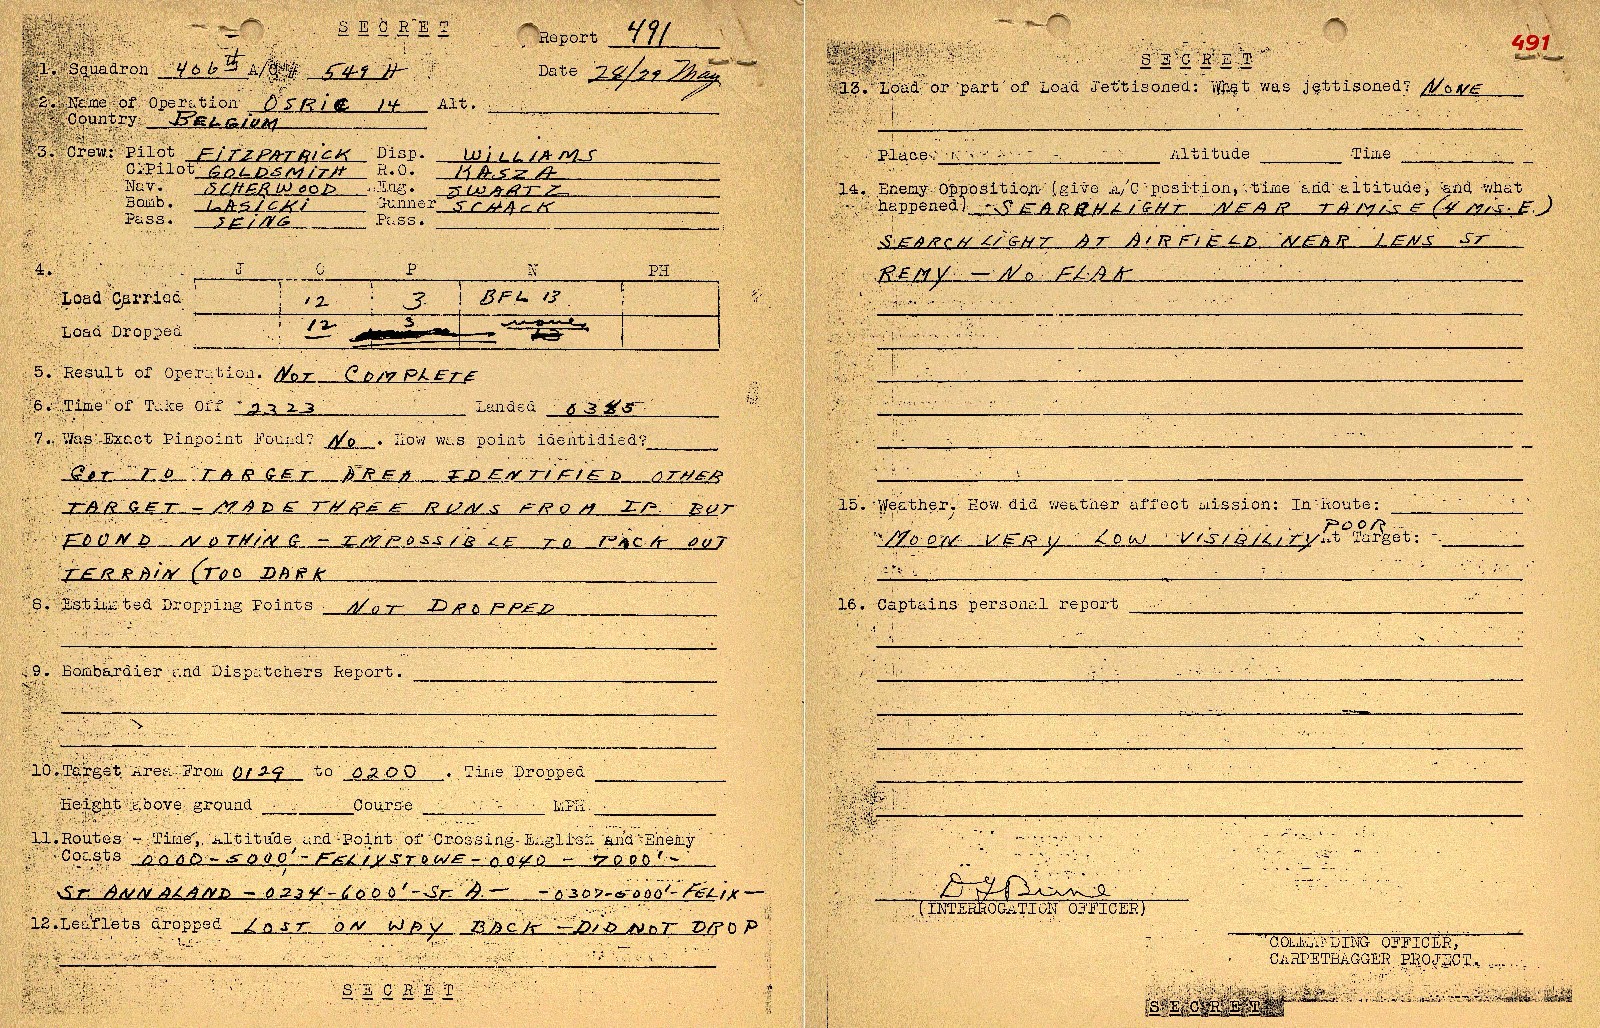 SECRET
Report 491
1. Squadron 406th A/C # 549 H Date 28/29 May
2. Name of Operation OSRIC 14 Alt.
Country BELGIUM
3. Crew: Pilot FITZPATRICK Disp. WILLIAMS
C.Pilot GOLDSMITH R.O. KASZA
Nav. SCHERWOOD Eng. SWARTZ
Bomb. LASICKI Gunner SCHACK
Pass. SEING Pass.
4. J C P N PH
Load Carried 12 3 BFL 13
Load Dropped 12 3 none
5. Result of Operation. NOT COMPLETE
6. Time of Take Off 2323 Landed
7. Was Exact Pinpoint Found? No . How was point identidied?
GOT TO TARGET AREA IDENTIFIED OTHER
TARGET - MADE THREE RUNS FROM IP BUT
FOUND NOTHING - IMPOSSIBLE TO PICK OUT
TERRAIN (TOO DARK
8. Estimated Dropping Points NOT DROPPED
9. Bombardier and Dispatchers Report.
10. Target Area From 0129 to 0200 . Time Dropped
Height above ground Course MPH
11. Routes - Time, Altitude and Point of Crossing English and Enemy
Coasts 0000-5000'-FELIXSTOWE-0040 - 7000'-
ST ANNALAND - 0234-6000'-ST A.- -0307-5000'-FELIX-
12. Leaflets dropped LOST ON WAY BACK - DID NOT DROP
SECRET
491
SECRET
13. Load or part of Load Jettisoned: What was jettisoned? NONE
Place Altitude Time
14. Enemy Opposition (give A/C position, time and altitude, and what
happened) -SEARCHLIGHT NEAR TAMISE (4 MIS. E.)
SEARCHLIGHT AT AIRFIELD NEAR LENS ST
REMY - NO FLAK
15. Weather. How did weather affect mission: In Route:
POOR
MOON VERY LOW VISIBILITY At Target:
16. Captains personal report
(INTERROGATION OFFICER)
COMMANDING OFFICER,
CARPETBAGGER PROJECT.
SECRET